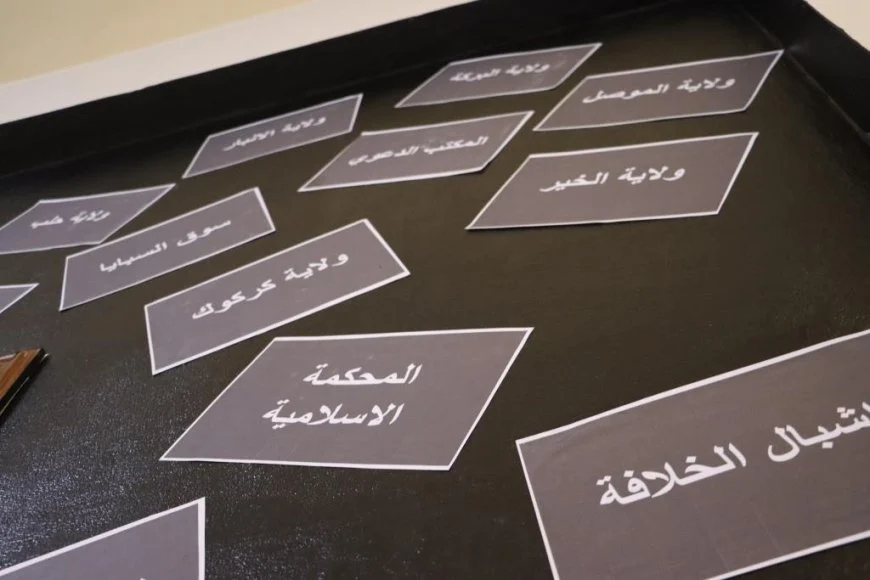 ولاية البركة
ولاية الموصل
ولاية الانبار
المكتب الدعوي
ولاية الخير
ولاية حلب
سوق السبايا
ولاية كركوك
المحكمة
الاسلامية
اشبال الخلافة